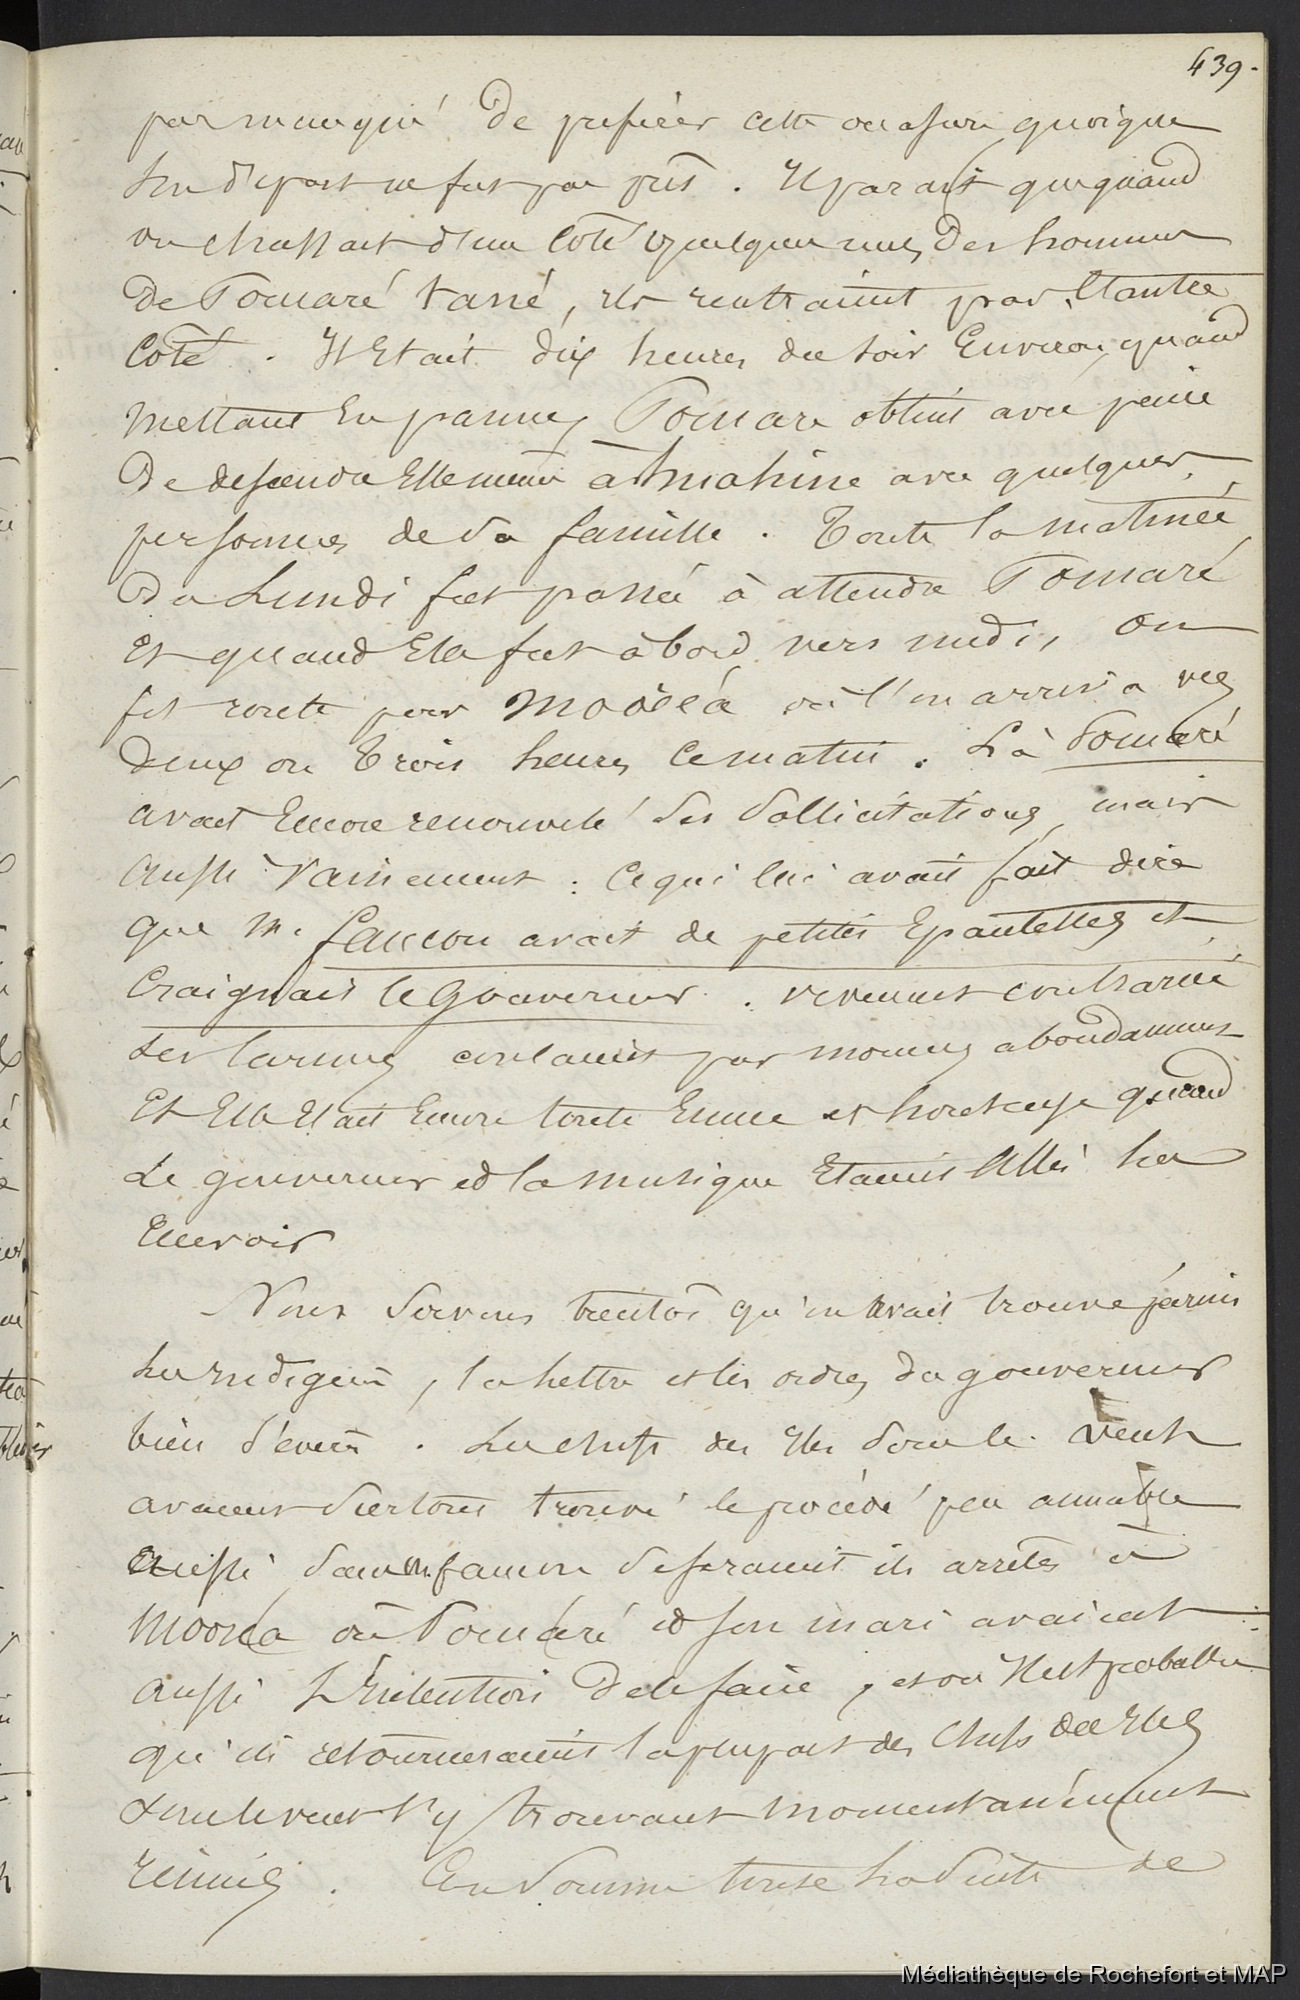 439.
pas manqué de profiter cette occasion quoique
Son départ ne fut pas prêt. Il parait que quand
on chassait d'un Coté quelques uns, Des hommes
De Pomaré Vané, ils rentraient par l'autre
Coté. Il Etait dix heures du Soir Environ, quand
Mettant En panne, Pomare obtint avec peine
De descendre Elle même à Mahine avec quelques
personnes de sa famille. Toute la matinée
Du Lundi fut passée à attendre Pomaré
Et quand Elle fut à bord vers midi, on
fit route pour Mooréa où l'on arriva vers
Deux ou Trois heures Ce matin. Là Pomaré
avait Encore renouvelé Ses Sollicitations, mais
Aussi Vainement : Ce qui lui avait fait dire
que M. Faucon avait de petites Epaulettes et
Craignait le Gouverneur.
Les larmes coulaient par moments abondamment
Et Elle Etait Encore toute Emue et honteuse quand
Le gouverneur et la Musique Etaient Allés la
Recevoir
Nous Savons bientôt qu'on avait trouvé parmi
Les Indigènes, la lettre et les ordres du gouverneur
bien Sévères. Les chefs des Iles Sous le Vent
avaient Surtout trouvé le procédé peu aimable
Aussi Sans M. faucon Se seraient ils arrêtés à
Mooréa où Pomaré et Son mari avaient
aussi L'Intention De le faire, et où Il est probable
qu'ils retourneraient la plupart des Chefs des Iles
Sous le vent S'y trouvant Momentanément
Réunis. En Somme toute la Suite de
Médiathèque de Rochefort et MAP